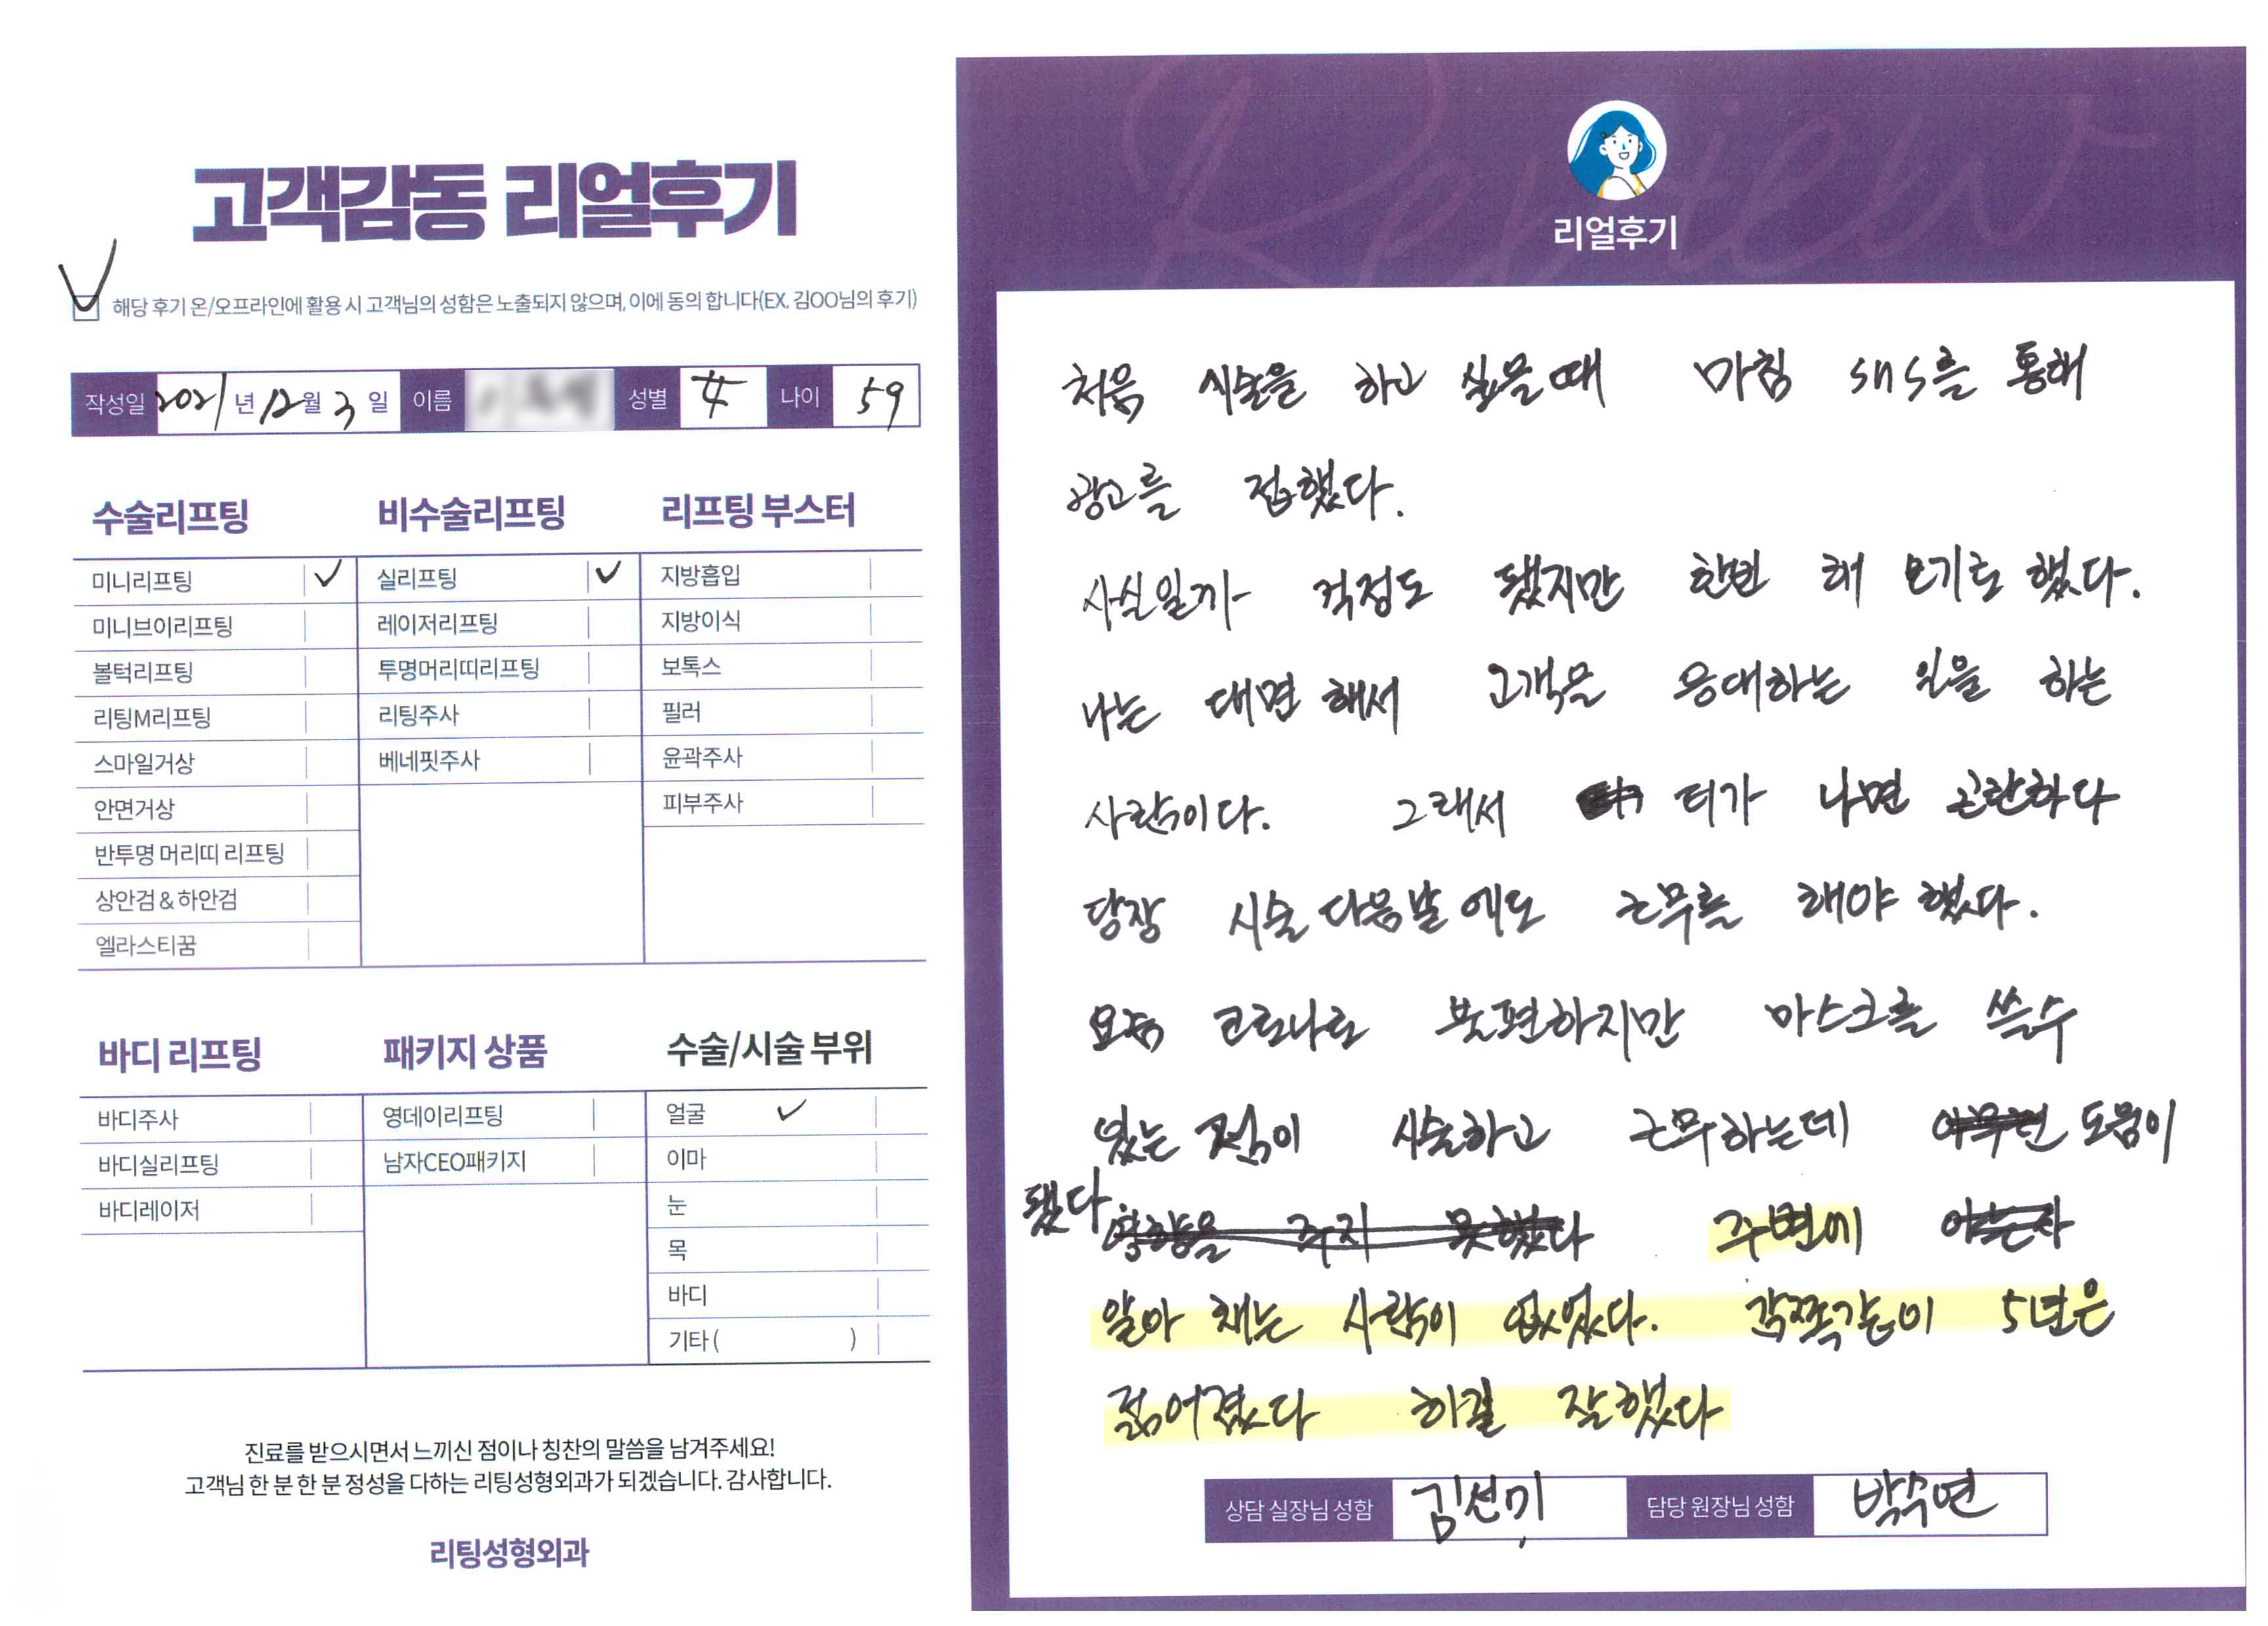 고객감동 리얼후기
해당 후기 온/오프라인에 활용 시 고객님의 성함은 노출되지 않으며, 이에 동의 합니다(EX. 김OO님의 후기)
작성일 2021년 12월 3일 이름 성별 女 나이 59
수술리프팅
미니리프팅 ✓
미니브이리프팅
볼턱리프팅
리팅M리프팅
스마일거상
안면거상
반투명 머리띠 리프팅
상안검 & 하안검
엘라스티꿈
비수술리프팅
실리프팅 ✓
레이저리프팅
투명머리띠리프팅
리팅주사
베네핏주사
리프팅 부스터
지방흡입
지방이식
보톡스
필러
윤곽주사
피부주사
바디 리프팅
바디주사
바디실리프팅
바디레이저
패키지 상품
영데이리프팅
남자CEO패키지
수술/시술 부위
얼굴 ✓
이마
눈
목
바디
기타 ( )
진료를 받으시면서 느끼신 점이나 칭찬의 말씀을 남겨주세요!
고객님 한 분 한 분 정성을 다하는 리팅성형외과가 되겠습니다. 감사합니다.
리팅성형외과
Review
리얼후기
처음 시술을 하고 싶을때 마침 sns를 통해
광고를 접했다.
사실일까 걱정도 됐지만 한번 해 보기로 했다.
나는 대면 해서 고객을 응대하는 일을 하는
사람이다. 그래서 티가 나면 곤란하다
당장 시술 다음날 에도 근무를 해야 했다.
요즘 코로나로 불편하지만 마스크를 쓸수
있는 점이 시술하고 근무하는데 도움이
됐다 영향을 주지 못했다 주변에
알아 채는 사람이 없었다. 감쪽같이 5년은
젊어졌다 하길 잘했다
상담 실장님 성함 김선미 담당 원장님 성함 박수연